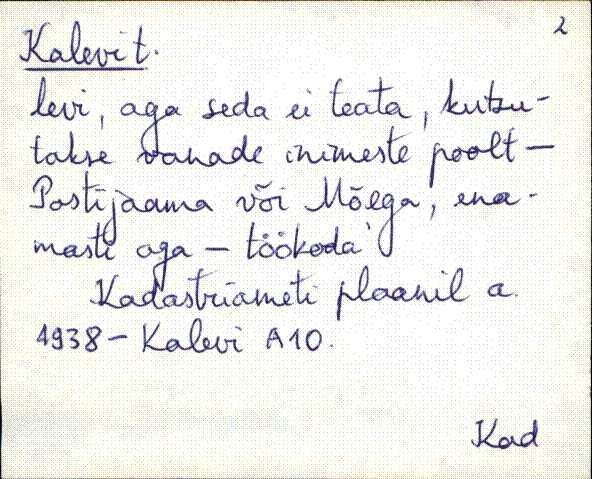 2
Kalevi t.
levi, aga seda ei teata, kutsu-
takse vanade inimeste poolt –
Postijaama või Mõega, ena-
masti aga – töökoda
Kadastriameti plaanil a.
1938 – Kalevi A10.
Kad